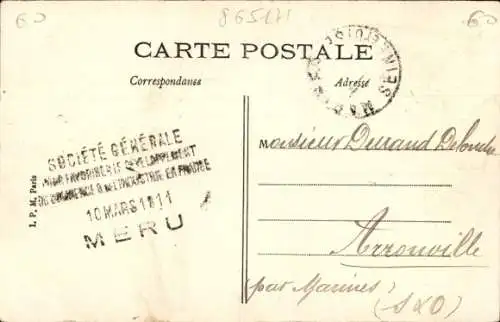 60
865171
60
CARTE POSTALE
Correspondance
Adresse
SOCIÉTÉ GÉNÉRALE
POUR FAVORISER LE DEVELOPPEMENT
DU COMMERCE & DE L'INDUSTRIE EN FRANCE
10 MARS 1911
MERU
I. P. M. Paris
Monsieur Durand
Arronville
(par Marines)
(S&O)